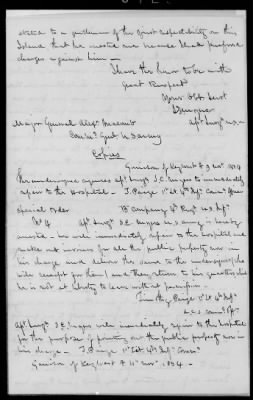 stated to a gentleman of the first respectability on this
Island that he arrested me because I had preferred
charges against him —
I have the honor to be with
Great Respect
Your Obt Servt
Asst Surgn U.S.A
Major General Alexr Macomb
Comdg Genl U.S. Army
Copies
Garrison of Key West
The undersigned requires Asst Surgn to immediately
repair to the Hospital — J. Paige 1st Lt 4th Infy Comg Officer
Special Order B Company 4th Regt U.S. Infy
No 4 Asst Surgn U.S. Army is hereby
arrested — he will immediately repair to the hospital and
make out invoices for all the public property now in
his charge and deliver the same to the undersigned (who
will receipt for them) and then return to his quarters, which
he is not at liberty to leave without permission.
Timothy Paige 1st Lt 4th Infy
Asst Surgn will immediately repair to the hospital
for the purpose of pointing out the public property now in
his charge — J Paige 1st Lieut 4th Infy
Garrison of Key West 11th Novr 1834 —